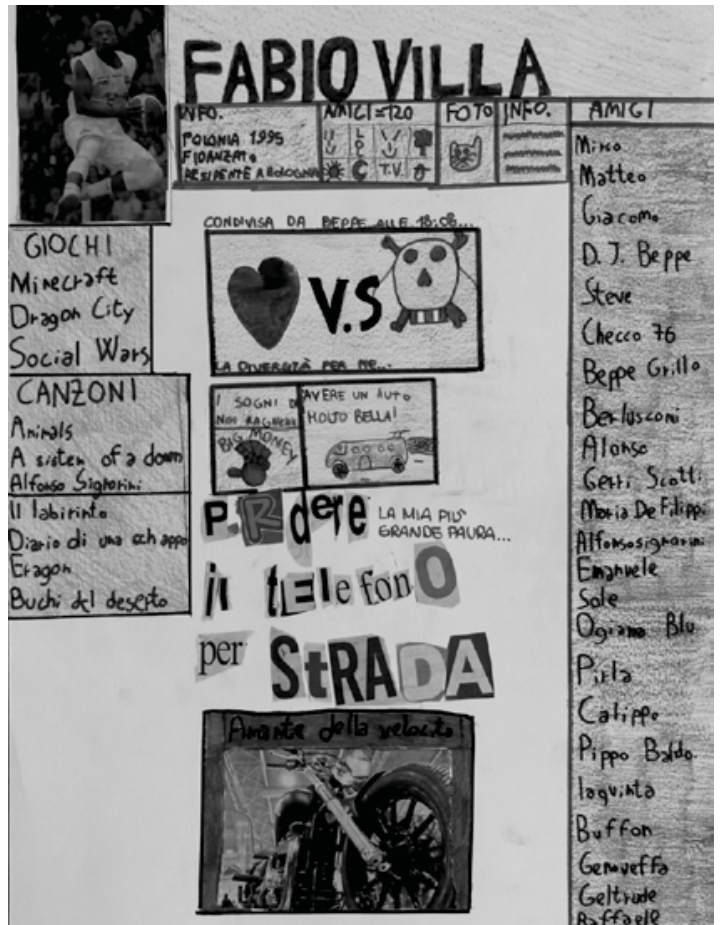 FABIO VILLA
INFO.
POLONIA 1995
FIDANZATO
RESIDENTE A BOLOGNA
AMICI=120
T.V.
FOTO
INFO.
AMICI
Mirko
Matteo
Giacomo
D.J. Beppe
Steve
Checco 76
Beppe Grillo
Berlusconi
Alonso
Gerri Scotti
Maria De Filippi
Alfonsosignorini
Emanuele
Sole
Ogiamo Blu
Pirla
Calippo
Pippo Baldo.
Iaquinta
Buffon
Genoveffa
Geltrude
Raffaele
GIOCHI
Minecraft
Dragon City
Social Wars
CANZONI
Animals
A sistem of a down
Alfonso Signorini
Il labirinto
Diario di una schiappa
Eragon
Buchi del deserto
CONDIVISA DA BEPPE ALLE 18:08...
V.S
LA DIVERSITÀ PER ME...
I SOGNI DI
NOI RAGAZZI
BIG MONEY
AVERE UN AUTO
MOLTO BELLA!
PERdere
LA MIA PIU'
GRANDE PAURA...
il tELefonO
per StRADA
Amante della velocità